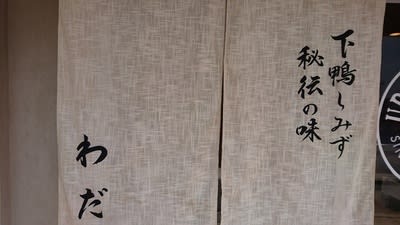 下鴨しみず
秘伝の味
わだ